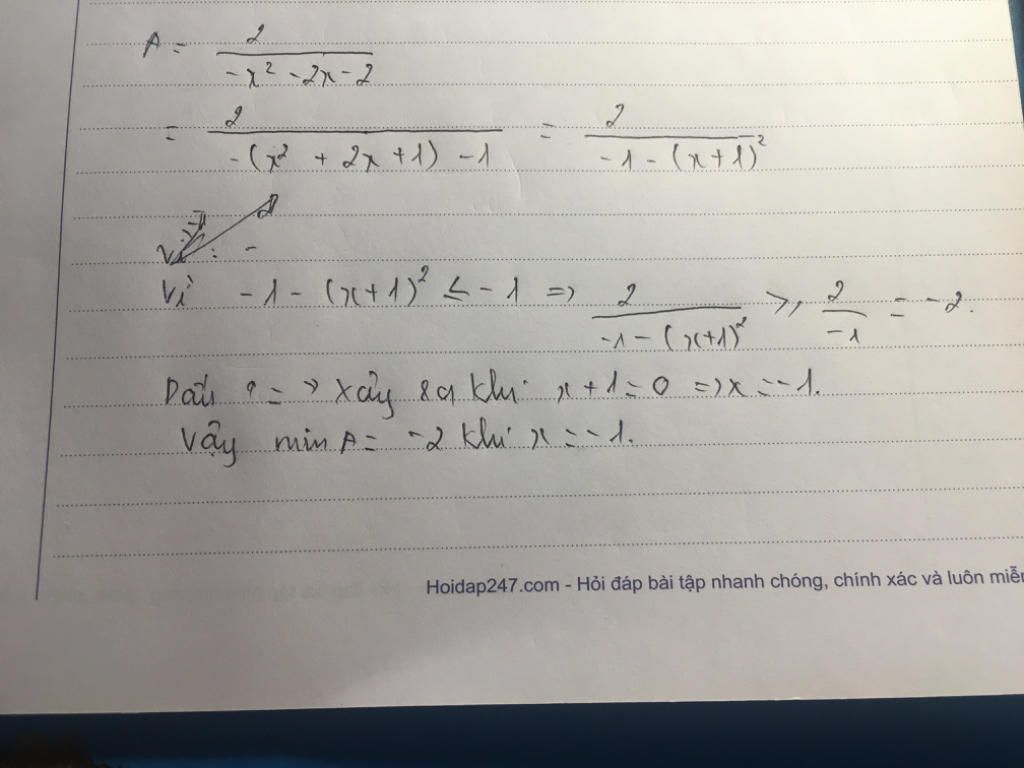 A = 2 / (-x² - 2x - 2)
= 2 / (-(x² + 2x + 1) - 1) = 2 / (-1 - (x+1)²)
Vì : -
Vì -1 - (x+1)² ≤ -1 => 2 / (-1 - (x+1)²) ≥ 2 / -1 = -2.
Dấu "=" xảy ra khi x + 1 = 0 => x = -1.
Vậy min A = -2 khi x = -1.
Hoidap247.com - Hỏi đáp bài tập nhanh chóng, chính xác và luôn miễn